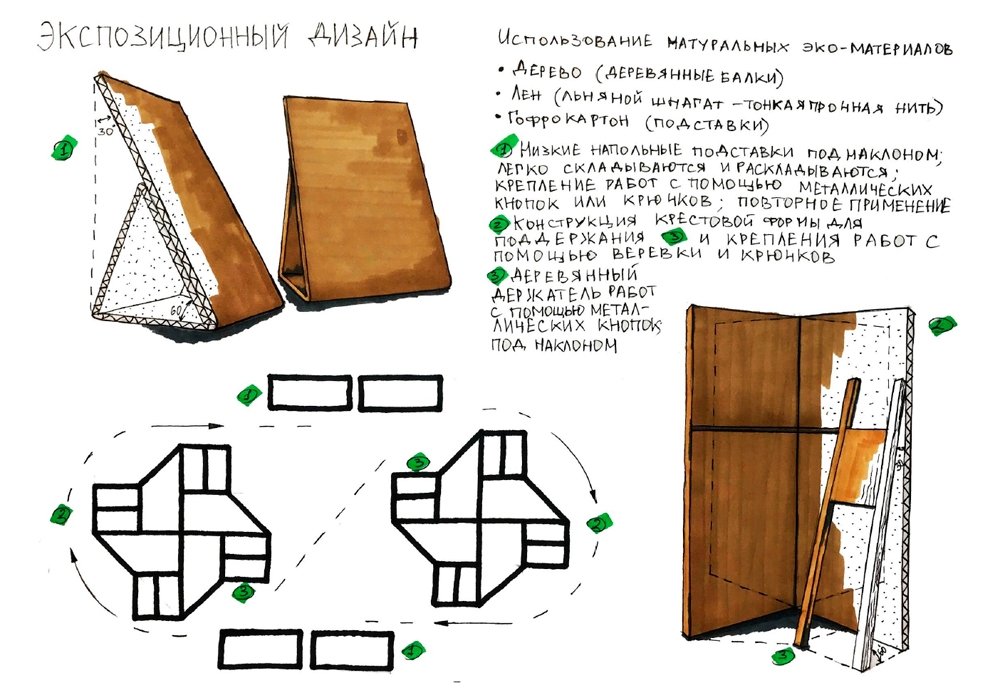 ЭКСПОЗИЦИОННЫЙ ДИЗАЙН
ИСПОЛЬЗОВАНИЕ НАТУРАЛЬНЫХ ЭКО-МАТЕРИАЛОВ
• ДЕРЕВО (ДЕРЕВЯННЫЕ БАЛКИ)
• ЛЕН (ЛЬНЯНОЙ ШПАГАТ - ТОНКАЯ ПРОЧНАЯ НИТЬ)
• ГОФРОКАРТОН (ПОДСТАВКИ)
1 НИЗКИЕ НАПОЛЬНЫЕ ПОДСТАВКИ ПОД НАКЛОНОМ;
ЛЕГКО СКЛАДЫВАЮТСЯ И РАСКЛАДЫВАЮТСЯ;
КРЕПЛЕНИЕ РАБОТ С ПОМОЩЬЮ МЕТАЛЛИЧЕСКИХ
КНОПОК ИЛИ КРЮЧКОВ; ПОВТОРНОЕ ПРИМЕНЕНИЕ
2 КОНСТРУКЦИЯ КРЕСТОВОЙ ФОРМЫ ДЛЯ
ПОДДЕРЖАНИЯ 3 И КРЕПЛЕНИЯ РАБОТ С
ПОМОЩЬЮ ВЕРЕВКИ И КРЮЧКОВ
3 ДЕРЕВЯННЫЙ
ДЕРЖАТЕЛЬ РАБОТ
С ПОМОЩЬЮ МЕТАЛ-
ЛИЧЕСКИХ КНОПОК
ПОД НАКЛОНОМ
30°
1
60°
2
30°
60°
3
1
3
2
2
3
1